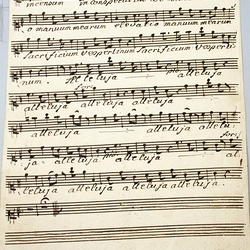 incensum in conspectu
o manuum mearum elevatio manuum mearum
Sacrificium Vespertinum Sacrificium Vesperti
num. Alleluja
alleluja alleluja
alleluja alleluja allelu
ja alleluja alleluja al
leluja alleluja alleluja alleluja.